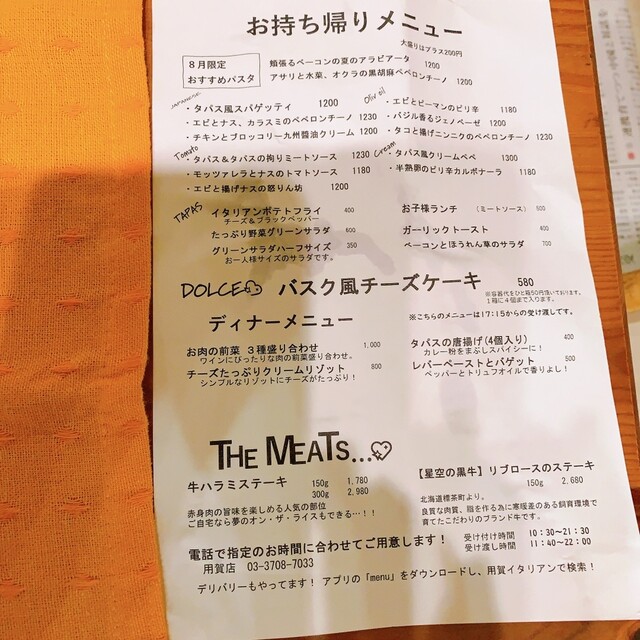 お持ち帰りメニュー
大盛りはプラス200円
8月限定
おすすめパスタ
頬張るベーコンの夏のアラビアータ 1200
アサリと水菜、オクラの黒胡麻ペペロンチーノ 1200
JAPANESE
・タパス風スパゲッティ 1200
・エビとナス、カラスミのペペロンチーノ 1230
・チキンとブロッコリー九州醤油クリーム 1200
Olive oil
・エビとピーマンのピリ辛 1180
・バジル香るジェノベーゼ 1200
・タコと揚げニンニクのペペロンチーノ 1230
Tomato
・タパス&タパスの拘りミートソース 1230
・モッツァレラとナスのトマトソース 1180
・エビと揚げナスの怒りん坊 1200
Cream
・タパス風クリームペペ 1300
・半熟卵のピリ辛カルボナーラ 1180
TAPAS
イタリアンポテトフライ 400
チーズ&ブラックペッパー
たっぷり野菜グリーンサラダ 600
グリーンサラダハーフサイズ 350
お一人様サイズのサラダです。
お子様ランチ (ミートソース) 500
ガーリックトースト 400
ベーコンとほうれん草のサラダ 700
DOLCE バスク風チーズケーキ 580
※容器代をひと箱50円頂いております。
1箱に4個まで入ります。
ディナーメニュー
※こちらのメニューは17:15からの受け渡しです。
お肉の前菜 3種盛り合わせ 1,000
ワインにぴったりな肉の前菜盛り合わせ。
チーズたっぷりクリームリゾット 800
シンプルなリゾットにチーズがたっぷり!
タパスの唐揚げ(4個入り) 400
カレー粉をまぶしスパイシーに!
レバーペーストとバゲット 500
ペッパーとトリュフオイルで香りよし!
THE MEATS...
牛ハラミステーキ 150g 1,780
300g 2,980
赤身肉の旨味を楽しめる人気の部位
ご自宅なら夢のオン・ザ・ライスもできる・・!!
【星空の黒牛】リブロースのステーキ
150g 2,680
北海道標茶町より。
良質な肉質、脂を作る為に寒暖差のある飼育環境で
育てたこだわりのブランド牛です。
電話で指定のお時間に合わせてご用意します!
受け付け時間 10:30〜21:30
受け渡し時間 11:40〜22:00
用賀店 03-3708-7033
デリバリーもやってます! アプリの「menu」をダウンロードし、用賀イタリアンで検索!